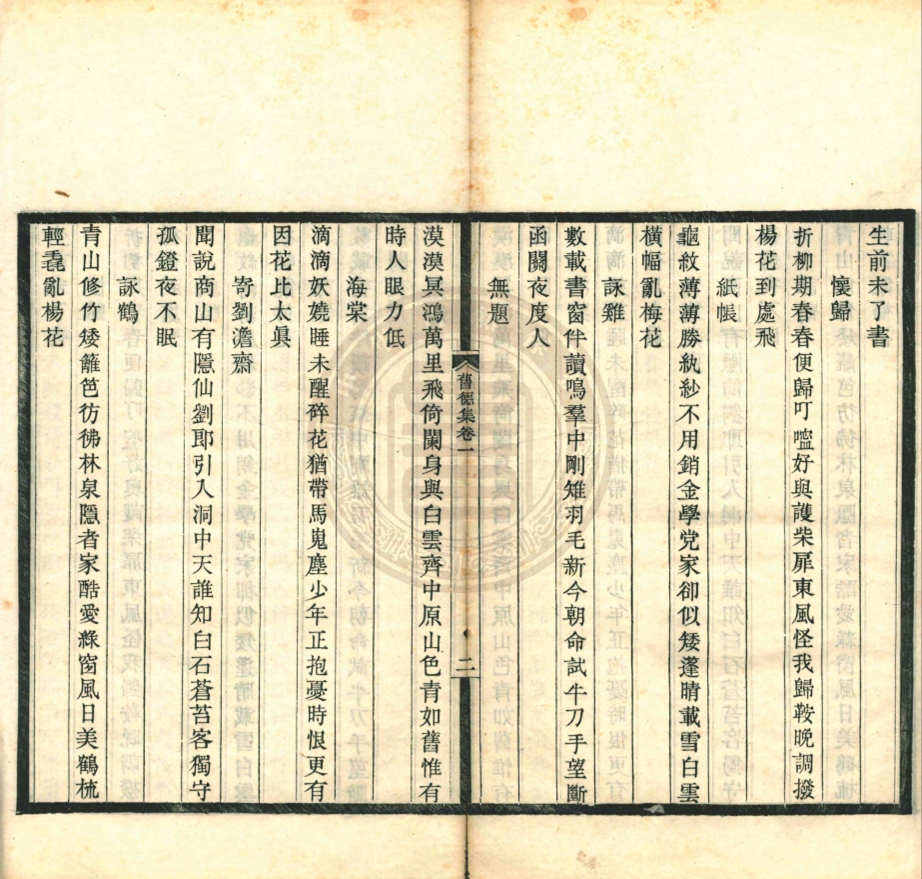 生前未了書
懷歸
折柳期春春便歸叮嚀好與護柴扉東風怪我歸鞍晚調撥
楊花到處飛
紙帳
龜紋薄薄勝紈紗不用銷金學党家卻似矮蓬晴載雪白雲
橫幅亂梅花
詠雞
數載書窗伴讀鳴羣中剛雉羽毛新今朝命試牛刀手望斷
函關夜度人
無題
舊德集卷一
二
漠漠冥鴻萬里飛倚闌身與白雲齊中原山色青如舊惟有
時人眼力低
海棠
滴滴妖嬈睡未醒碎花猶帶馬嵬塵少年正抱憂時恨更有
因花比太眞
寄劉澹齋
聞說商山有隱仙劉郎引入洞中天誰知白石蒼苔客獨守
孤鐙夜不眠
詠鶴
青山修竹矮籬笆彷彿林泉隱者家酷愛綠窗風日美鶴梳
輕毳亂楊花